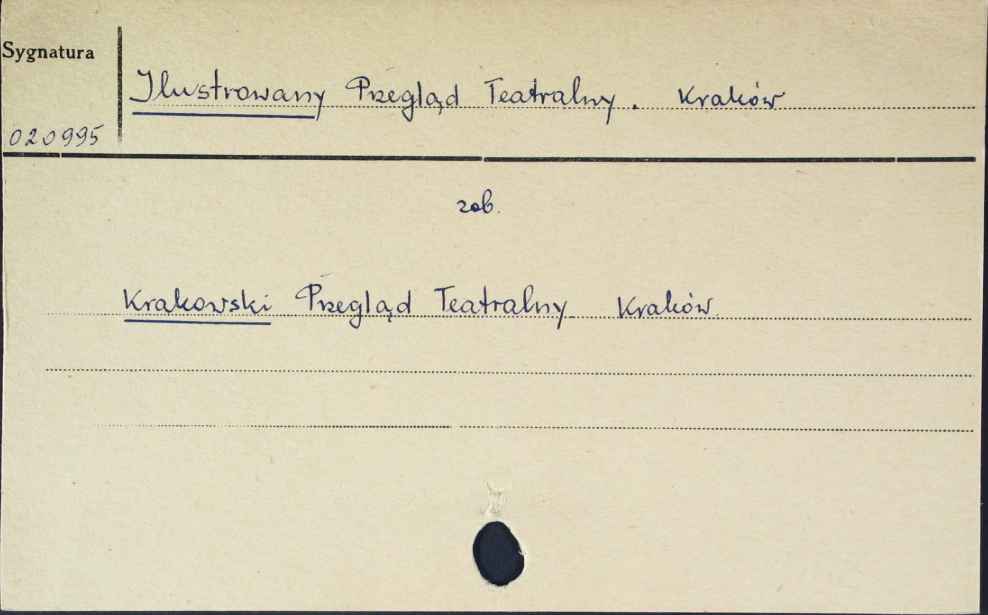 Sygnatura
Ilustrowany Przegląd Teatralny. Kraków
020995
zob.
Krakowski Przegląd Teatralny Kraków